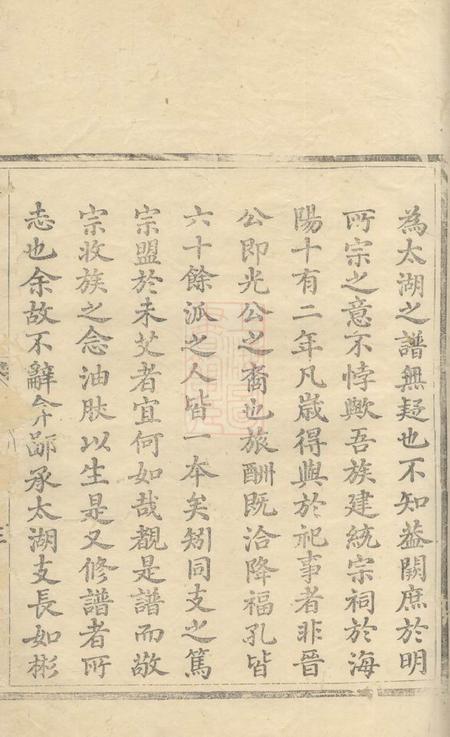 為太湖之譜無疑也不知葢闕庶於明
所宗之意不悖歟吾族建統宗祠於海
陽十有二年凡歲得與於祀事者非晉
公即光公之裔也旅酬既洽降福孔皆
六十餘派之人皆一本矣矧同支之篤
宗盟於未艾者宜何如哉覩是譜而敬
宗收族之念油肰以生是又修譜者所
志也余故不辭弇鄙承太湖支長如彬